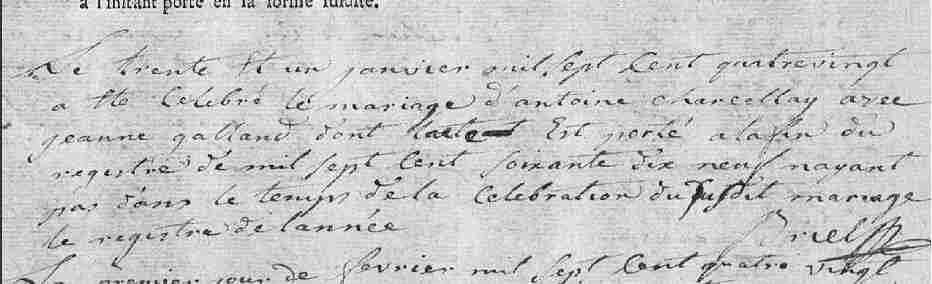 à l'instant porté en la forme susdite.
Le trente Et un janvier mil sept Cent quatrevingt
a ete Celebré le mariage d'antoine charcellay avec
jeanne galland dont l'acte Est porté a la fin du
registre de mil sept Cent soixante dix neuf nayant
pas dans le temps de la Celebration du susdit mariage
le registre de lannée
Briel
Le premier jour de fevrier mil sept Cent quatre vingt